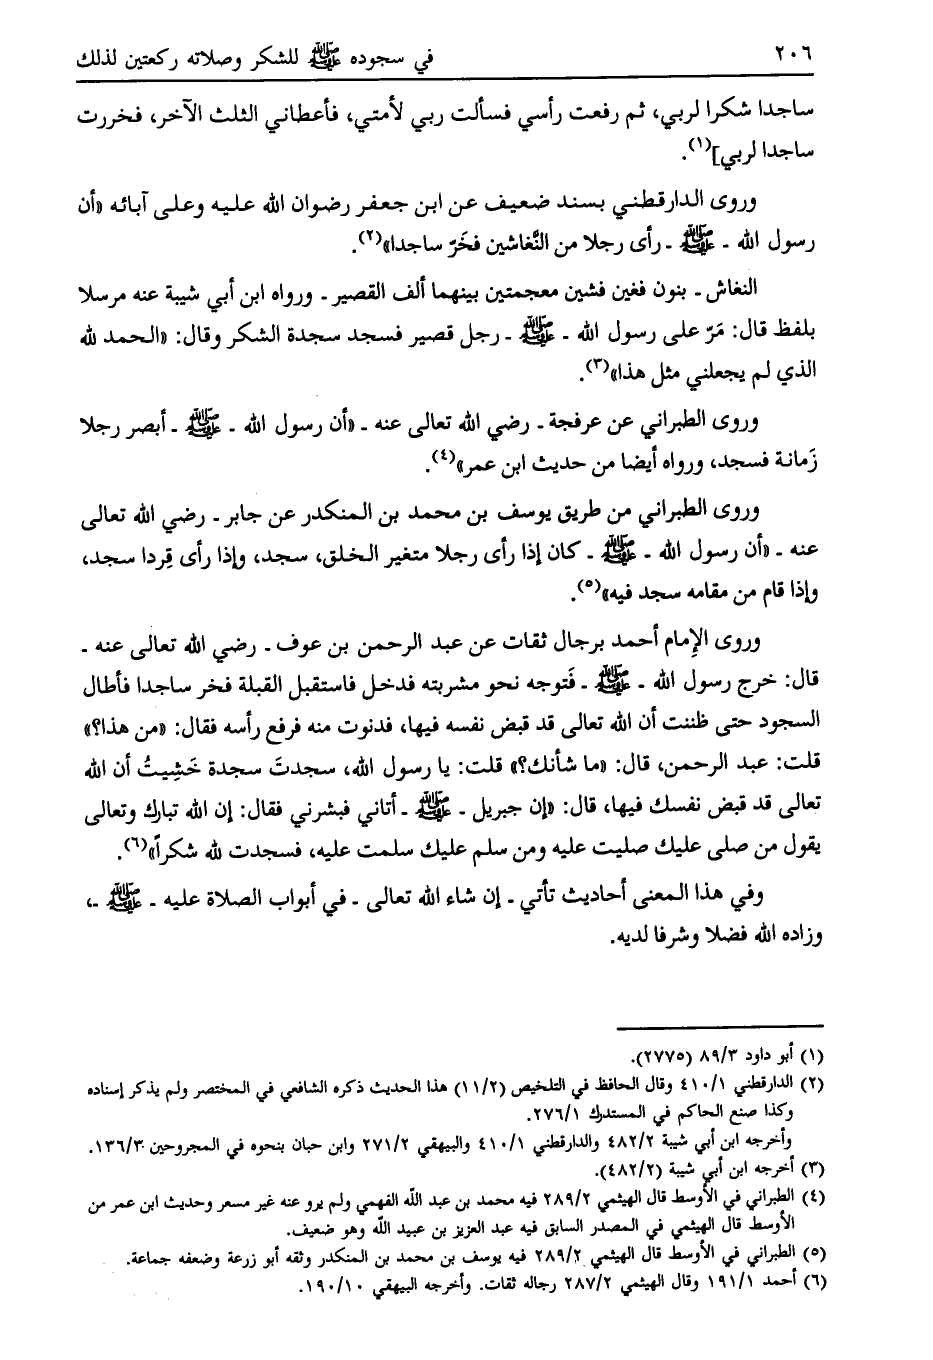 ٢٠٦
في سجوده ﷺ للشكر وصلاته ركعتين لذلك
ساجدا شكرا لربي، ثم رفعت رأسي فسألت ربي لأمتي، فأعطاني الثلث الآخر، فخررت
ساجدا لربي](١).
وروى الدارقطني بسند ضعيف عن ابن جعفر رضوان الله عليه وعلى آبائه «أن
رسول الله ـ ﷺ ـ رأى رجلا من النَّغاشين فخَرّ ساجدا»(٢).
النغاش ـ بنون فغين فشين معجمتين بينهما ألف القصير ـ ورواه ابن أبي شيبة عنه مرسلا
بلفظ قال: مَرّ على رسول الله ـ ﷺ ـ رجل قصير فسجد سجدة الشكر وقال: «الحمد لله
الذي لم يجعلني مثل هذا»(٣).
وروى الطبراني عن عرفجة ـ رضي الله تعالى عنه ـ «أن رسول الله ـ ﷺ ـ أبصر رجلا
زَمانة فسجد، ورواه أيضا من حديث ابن عمر»(٤).
وروى الطبراني من طريق يوسف بن محمد بن المنكدر عن جابر ـ رضي الله تعالى
عنه ـ «أن رسول الله ـ ﷺ ـ كان إذا رأى رجلا متغير الخلق، سجد، وإذا رأى قِردا سجد،
وإذا قام من مقامه سجد فيه»(٥).
وروى الإمام أحمد برجال ثقات عن عبد الرحمن بن عوف ـ رضي الله تعالى عنه ـ
قال: خرج رسول الله ـ ﷺ ـ فَتوجه نحو مشربته فدخل فاستقبل القبلة فخر ساجدا فأطال
السجود حتى ظننت أن الله تعالى قد قبض نفسه فيها، فدنوت منه فرفع رأسه فقال: «من هذا؟»
قلت: عبد الرحمن، قال: «ما شأنك؟» قلت: يا رسول الله، سجدتَ سجدة خَشِيتُ أن الله
تعالى قد قبض نفسك فيها، قال: «إن جبريل ـ ﷺ ـ أتاني فبشرني فقال: إن الله تبارك وتعالى
يقول من صلى عليك صليت عليه ومن سلم عليك سلمت عليه، فسجدت لله شكراً»(٦).
وفي هذا المعنى أحاديث تأتي ـ إن شاء الله تعالى ـ في أبواب الصلاة عليه ـ ﷺ ـ،
وزاده الله فضلا وشرفا لديه.
(١) أبو داود ٨٩/٣ (٢٧٧٥).
(٢) الدارقطني ٤١٠/١ وقال الحافظ في التلخيص (١١/٢) هذا الحديث ذكره الشافعي في المختصر ولم يذكر إسناده
وكذا صنع الحاكم في المستدرك ٢٧٦/١.
وأخرجه ابن أبي شيبة ٤٨٢/٢ والدارقطني ٤١٠/١ والبيهقي ٢٧١/٢ وابن حبان بنحوه في المجروحين ١٣٦/٣.
(٣) أخرجه ابن أبي شيبة (٤٨٢/٢).
(٤) الطبراني في الأوسط قال الهيثمي ٢٨٩/٢ فيه محمد بن عبد الله الفهمي ولم يرو عنه غير مسعر وحديث ابن عمر من
الأوسط قال الهيثمي في المصدر السابق فيه عبد العزيز بن عبيد الله وهو ضعيف.
(٥) الطبراني في الأوسط قال الهيثمي ٢٨٩/٢ فيه يوسف بن محمد بن المنكدر وثقه أبو زرعة وضعفه جماعة.
(٦) أحمد ١٩١/١ وقال الهيثمي ٢٨٧/٢ رجاله ثقات. وأخرجه البيهقي ١٩٠/١٠.